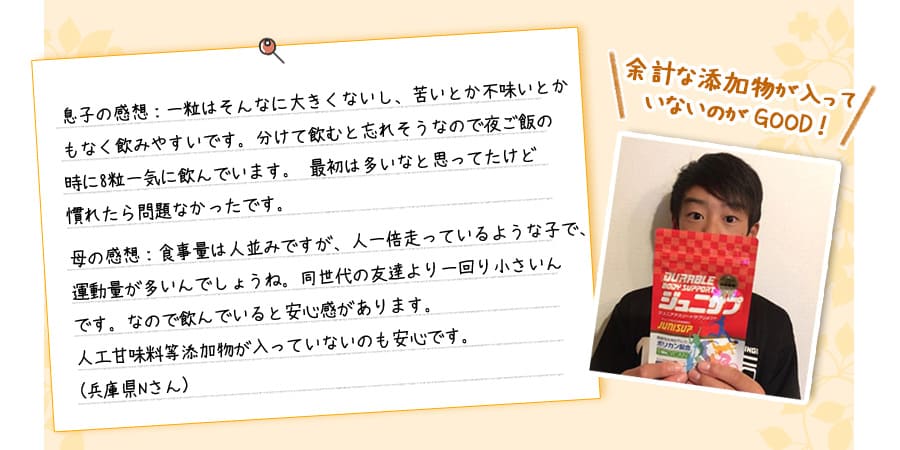 息子の感想：一粒はそんなに大きくないし、苦いとか不味いとか
もなく飲みやすいです。分けて飲むと忘れそうなので夜ご飯の
時に8粒一気に飲んでいます。 最初は多いなと思ってたけど
慣れたら問題なかったです。
母の感想：食事量は人並みですが、人一倍走っているような子で、
運動量が多いんでしょうね。同世代の友達より一回り小さいん
です。なので飲んでいると安心感があります。
人工甘味料等添加物が入っていないのも安心です。
（兵庫県Nさん）
余計な添加物が入って
いないのが GOOD！
DURABLE
BODY SUPPORT
ジュニサプ
JUNISUP
ポリカン配合